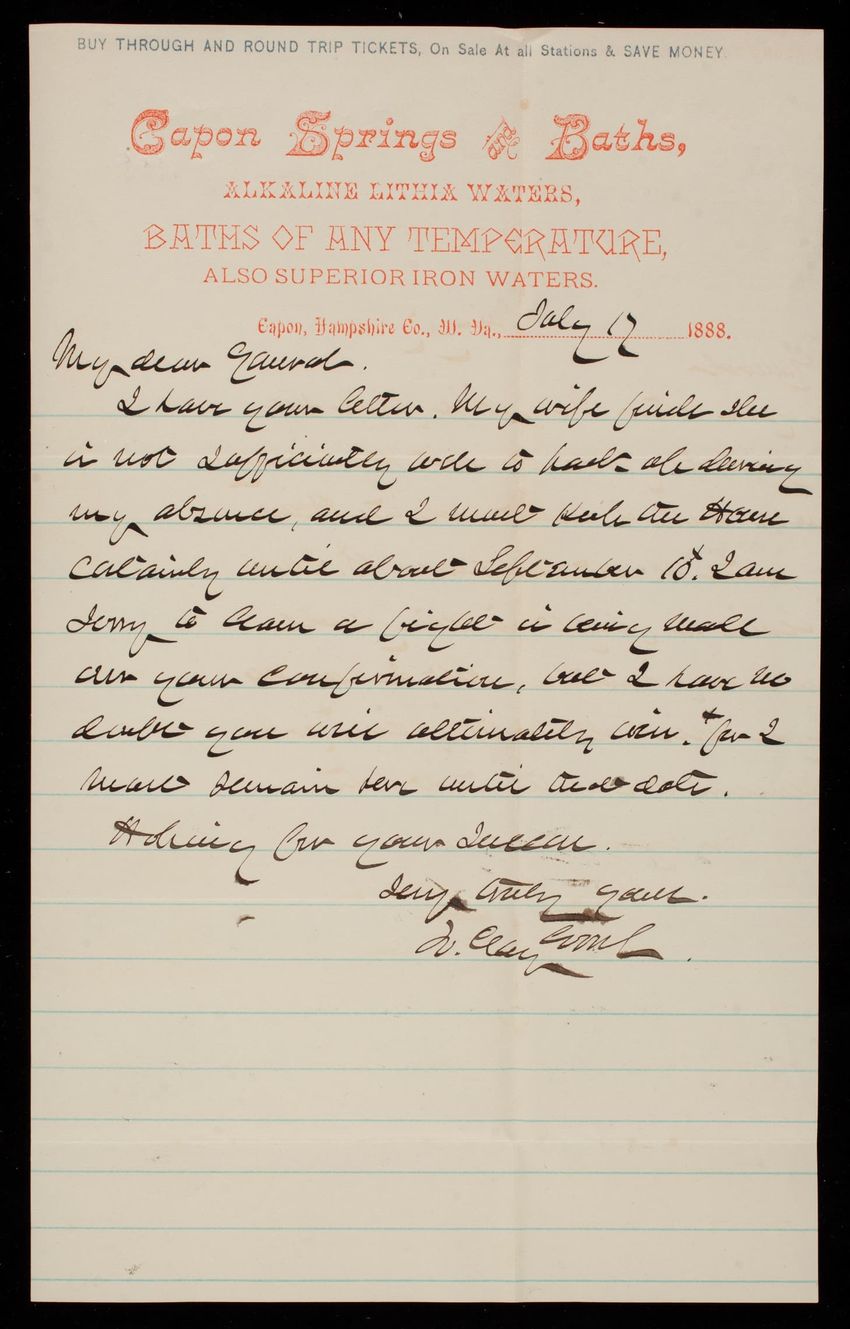 BUY THROUGH AND ROUND TRIP TICKETS, On Sale At all Stations & SAVE MONEY.
Capon Springs and Baths,
ALKALINE LITHIA WATERS,
BATHS OF ANY TEMPERATURE,
ALSO SUPERIOR IRON WATERS.
Capon, Hampshire Co., W. Va., July 17 1888.
My dear General.
I have your letter. My wife finds she
is not sufficiently well to during
my absence, and I must the House
certainly until about September 10th. I am
sorry to learn a fight is being made
over your confirmation, but I have no
doubt you will ultimately win. for I
must remain here until that date.
for your success.
Very truly yours.
W. Clay